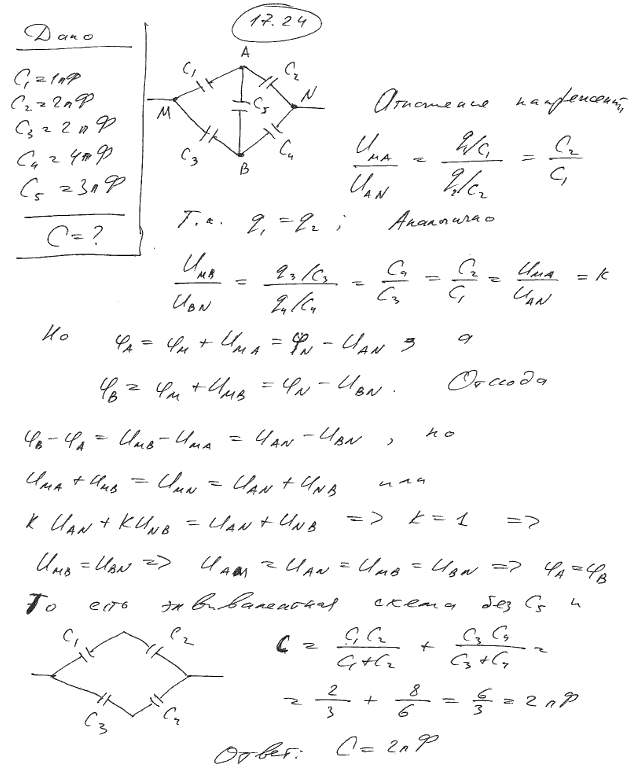 17.24
Дано
C₁=1пФ
C₂=2пФ
C₃=2пФ
C₄=4пФ
C₅=3пФ
C=?
A
C₁ C₂
M C₅ N
C₃ C₄
B
Отношение напряжений,
U_MA/U_AN = (q₁/C₁)/(q₂/C₂) = C₂/C₁
Т.к. q₁=q₂; Аналогично
U_MB/U_BN = (q₃/C₃)/(q₄/C₄) = C₄/C₃ = C₂/C₁ = U_MA/U_AN = K
Но φ_A = φ_M + U_MA = φ_N − U_AN, а
φ_B = φ_M + U_MB = φ_N − U_BN. Отсюда
φ_B − φ_A = U_MB − U_MA = U_AN − U_BN, но
U_MA + U_MB = U_MN = U_AN + U_NB или
K U_AN + K U_NB = U_AN + U_NB => K=1 =>
U_MB = U_BN => U_AM = U_AN = U_MB = U_BN => φ_A = φ_B
То есть эквивалентная схема без C₅ и
C₁ C₂
C₃ C₂
C = C₁C₂/(C₁+C₂) + C₃C₄/(C₃+C₄) =
= 2/3 + 8/6 = 6/3 = 2пФ
Ответ: C=2пФ